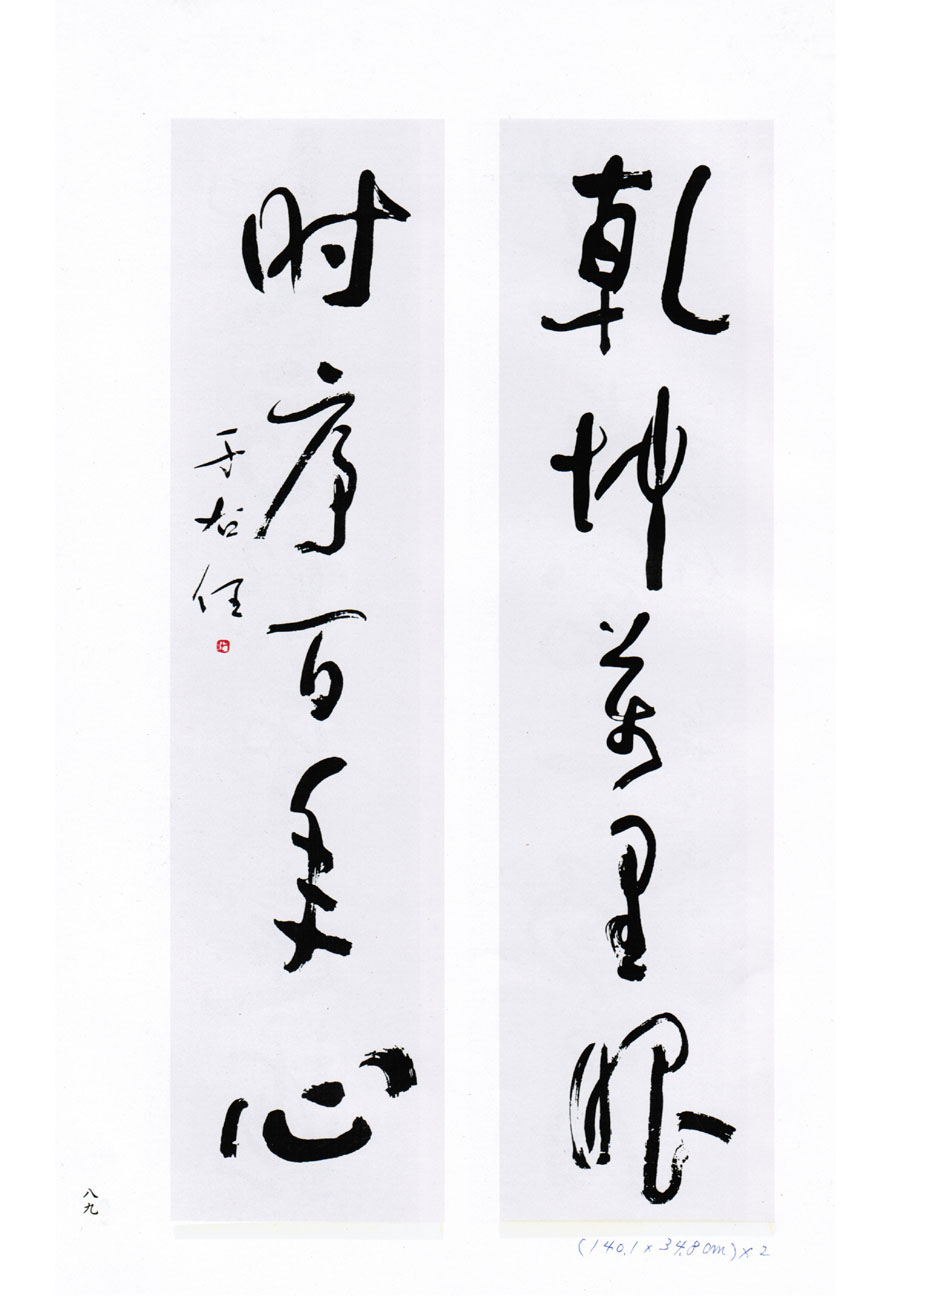 乾坤萬里眼
時序百年心
于右任
八九
(140.1 x 34.8cm) x 2